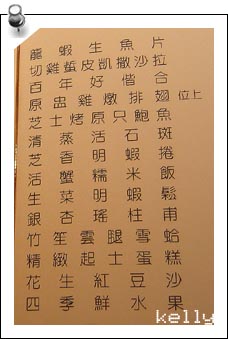 龍蝦生魚片
切雞蜇皮凱撒沙拉
百年好偕合
原盅雞燉排翅 位上
芝士烤原只鮑魚
清蒸活石斑
芝香明蝦捲
活蟹糯米飯
生菜明蝦鬆
銀杏瑤柱甫
竹笙雲腿雪蛤
精緻起士蛋糕
花生紅豆沙
四季鮮水果
kelly